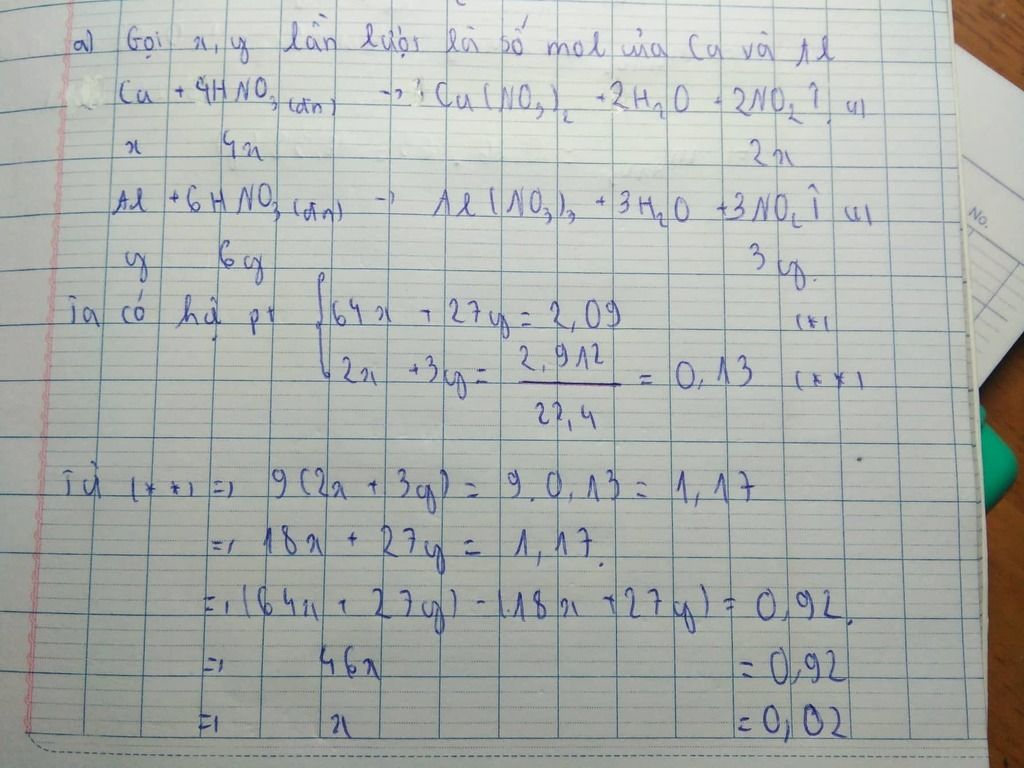 a) Gọi x, y lần lượt là số mol của Cu và Al
Cu + 4HNO₃ (đn) → Cu(NO₃)₂ + 2H₂O + 2NO₂↑ (1)
x 4x 2x
Al + 6HNO₃ (đn) → Al(NO₃)₃ + 3H₂O + 3NO₂↑ (1)
y 6y 3y.
Ta có hệ pt { 64x + 27y = 2,09 (*)
2x + 3y = 2,912 / 22,4 = 0,13 (**)
Từ (**) => 9(2x + 3y) = 9.0,13 = 1,17
=> 18x + 27y = 1,17.
=> (64x + 27y) - (18x + 27y) = 0,92.
=> 46x = 0,92
=> x = 0,02
No.